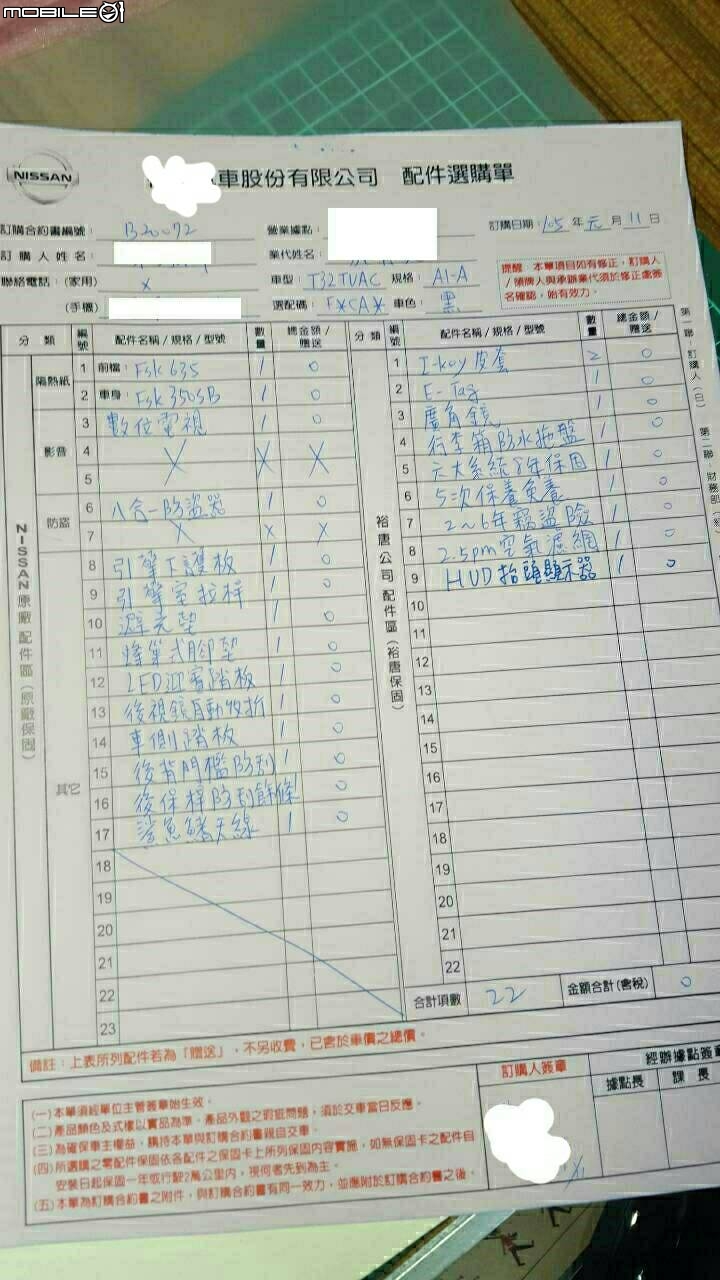 MOBILE01
NISSAN
車股份有限公司 配件選購單
訂購合約書編號： B20072
營業據點：
訂購日期：105年元月11日
訂購人姓名：
業代姓名：
聯絡電話：(家用) X
車型：T32TVAC 規格：A1-A
(手機)
選配碼：F*CA* 車色：黑
提醒：本單項目如有修正，訂購人
／領牌人與承辦業代須於修正處簽
名確認，始有效力。
分類 編號 配件名稱/規格/型號 數量 總金額/贈送
隔熱紙
1 前檔：Fsk 635 1 0
2 車身：Fsk 350SB 1 0
影音
3 數位電視 1 0
4 X X X
5
防盜
6 八合一防盜器 1 0
7 X X X
NISSAN原廠配件區(原廠保固)
其它
8 引擎下護板 1 0
9 引擎室拉桿 1 0
10 避光墊 1 0
11 蜂巢式腳墊 1 0
12 LED迎賓踏板 1 0
13 後視鏡自動收折 1 0
14 車側踏板 1 0
15 後背門檻防刮 1 0
16 後保桿防刮飾條 1 0
17 鯊魚鰭天線 1 0
18
19
20
21
22
23
分類 編號 配件名稱/規格/型號 數量 總金額/贈送
裕唐公司配件區(裕唐保固)
1 I-key皮套 2 0
2 E-Tag 1 0
3 廣角鏡 1 0
4 行李箱防水拖盤 1 0
5 六大系統5年保固 1 0
6 5次保養免費 1 0
7 2~6年竊盜險 1 0
8 2.5pm空氣濾網 1 0
9 HUD抬頭顯示器 1 0
10
11
12
13
14
15
16
17
18
19
20
21
22
合計項數 22 金額合計(含稅) 0
第一聯：訂購人(白) 第二聯：財務部
備註：上表所列配件若為「贈送」，不另收費，已含於車價之總價。
(一)本單須經單位主管簽章始生效。
(二)產品顏色及式樣以實品為準，產品外觀之瑕疵問題，須於交車當日反應。
(三)為確保車主權益，請持本單與訂購合約書親自交車。
(四)所選購之零配件保固依各配件之保固卡上所列保固內容實施，如無保固卡之配件自
安裝日起保固一年或行駛2萬公里內，視何者先到為主。
(五)本單為訂購合約書之附件，與訂購合約書有同一效力，並應附於訂購合約書之後。
訂購人簽章
經辦據點簽章
據點長 課長